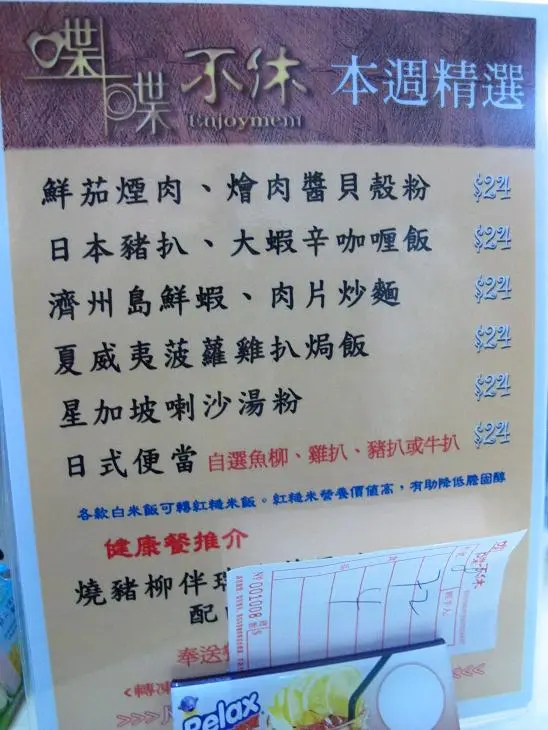 喋喋不休 Enjoyment
本週精選
鮮茄煙肉、燴肉醬貝殼粉 $24
日本豬扒、大蝦辛咖喱飯 $24
濟州島鮮蝦、肉片炒麵 $24
夏威夷菠蘿雞扒焗飯 $24
星加坡喇沙湯粉 $24
日式便當 自選魚柳、雞扒、豬扒或牛扒 $24
各款白米飯可轉紅糙米飯。紅糙米營養價值高,有助降低膽固醇
健康餐推介
燒豬柳伴
配
奉送
<轉凍
>>>
<<<
喋喋不休
Nº 001008
Relax